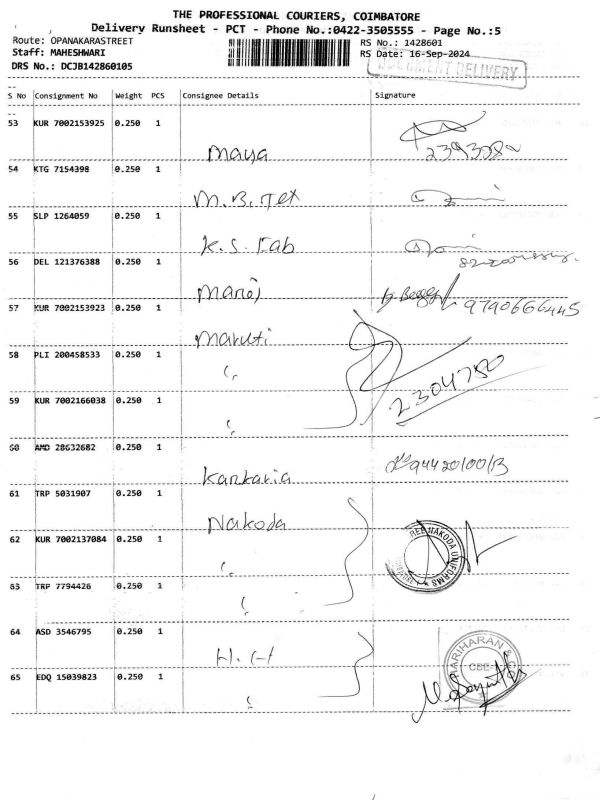 THE PROFESSIONAL COURIERS, COIMBATORE
Delivery Runsheet - PCT - Phone No.:0422-3505555 - Page No.:5
Route: OPANAKARASTREET
RS No.: 1428601
Staff: MAHESHWARI
RS Date: 16-Sep-2024
DRS No.: DCJB142860105
DOCUMENT DELIVERY
S No Consignment No Weight PCS Consignee Details Signature
53 KUR 7002153925 0.250 1
Maya
54 KTG 7154398 0.250 1
M.B. Tex
55 SLP 1264059 0.250 1
K.S. Fab
56 DEL 121376388 0.250 1
Manoj
57 KUR 7002153923 0.250 1
9790666445
Maruti
58 PLI 200458533 0.250 1
"
2304750
59 KUR 7002166038 0.250 1
"
60 AMD 28632682 0.250 1
Kankaria
61 TRP 5031907 0.250 1
Nakoda
62 KUR 7002137084 0.250 1
"
REE NAKODA UNIFORMS
63 TRP 7794426 0.250 1
"
64 ASD 3546795 0.250 1
HARIHARAN &
CBE
65 EDQ 15039823 0.250 1
"